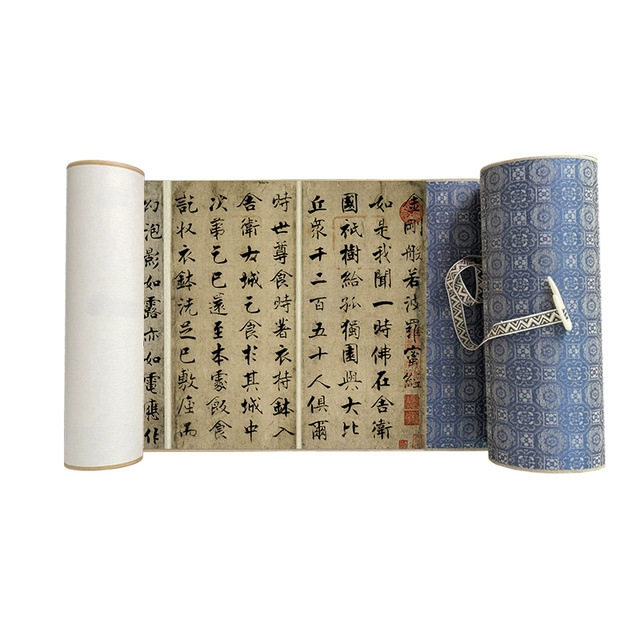 金剛般若波羅蜜經
如是我聞一時佛在舍衛
國祇樹給孤獨園與大比
丘衆千二百五十人俱爾
時世尊食時著衣持鉢入
舍衛大城乞食於其城中
次第乞已還至本處飯食
訖収衣鉢洗足已敷座而
幻泡影如露亦如電應作